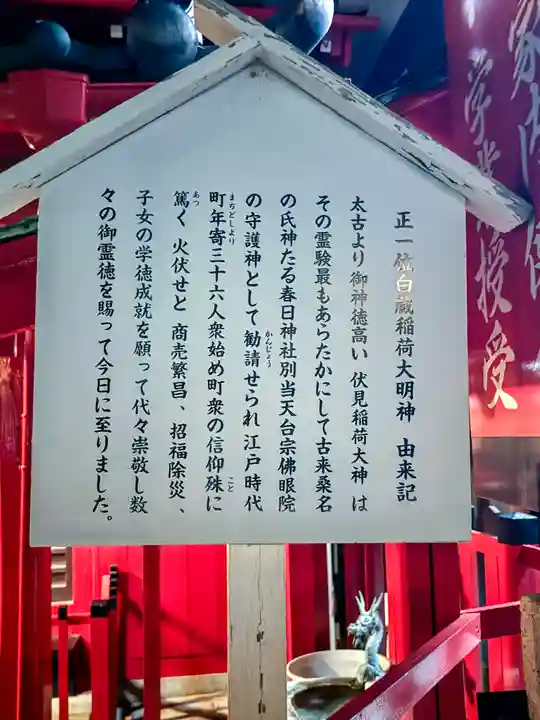 正一位白蔵稲荷大明神 由来記
太古より御神徳高い 伏見稲荷大神 は
その霊験最もあらたかにして古来桑名
の氏神たる春日神社別当天台宗佛眼院
の守護神として勧請せられ江戸時代
かんじょう
町年寄三十六人衆始め町衆の信仰殊に
まちどしより
こと
篤く 火伏せと 商売繁昌、招福除災、
あつ
子女の学徳成就を願って代々崇敬し数
々の御霊徳を賜って今日に至りました。
家内
学業
授受